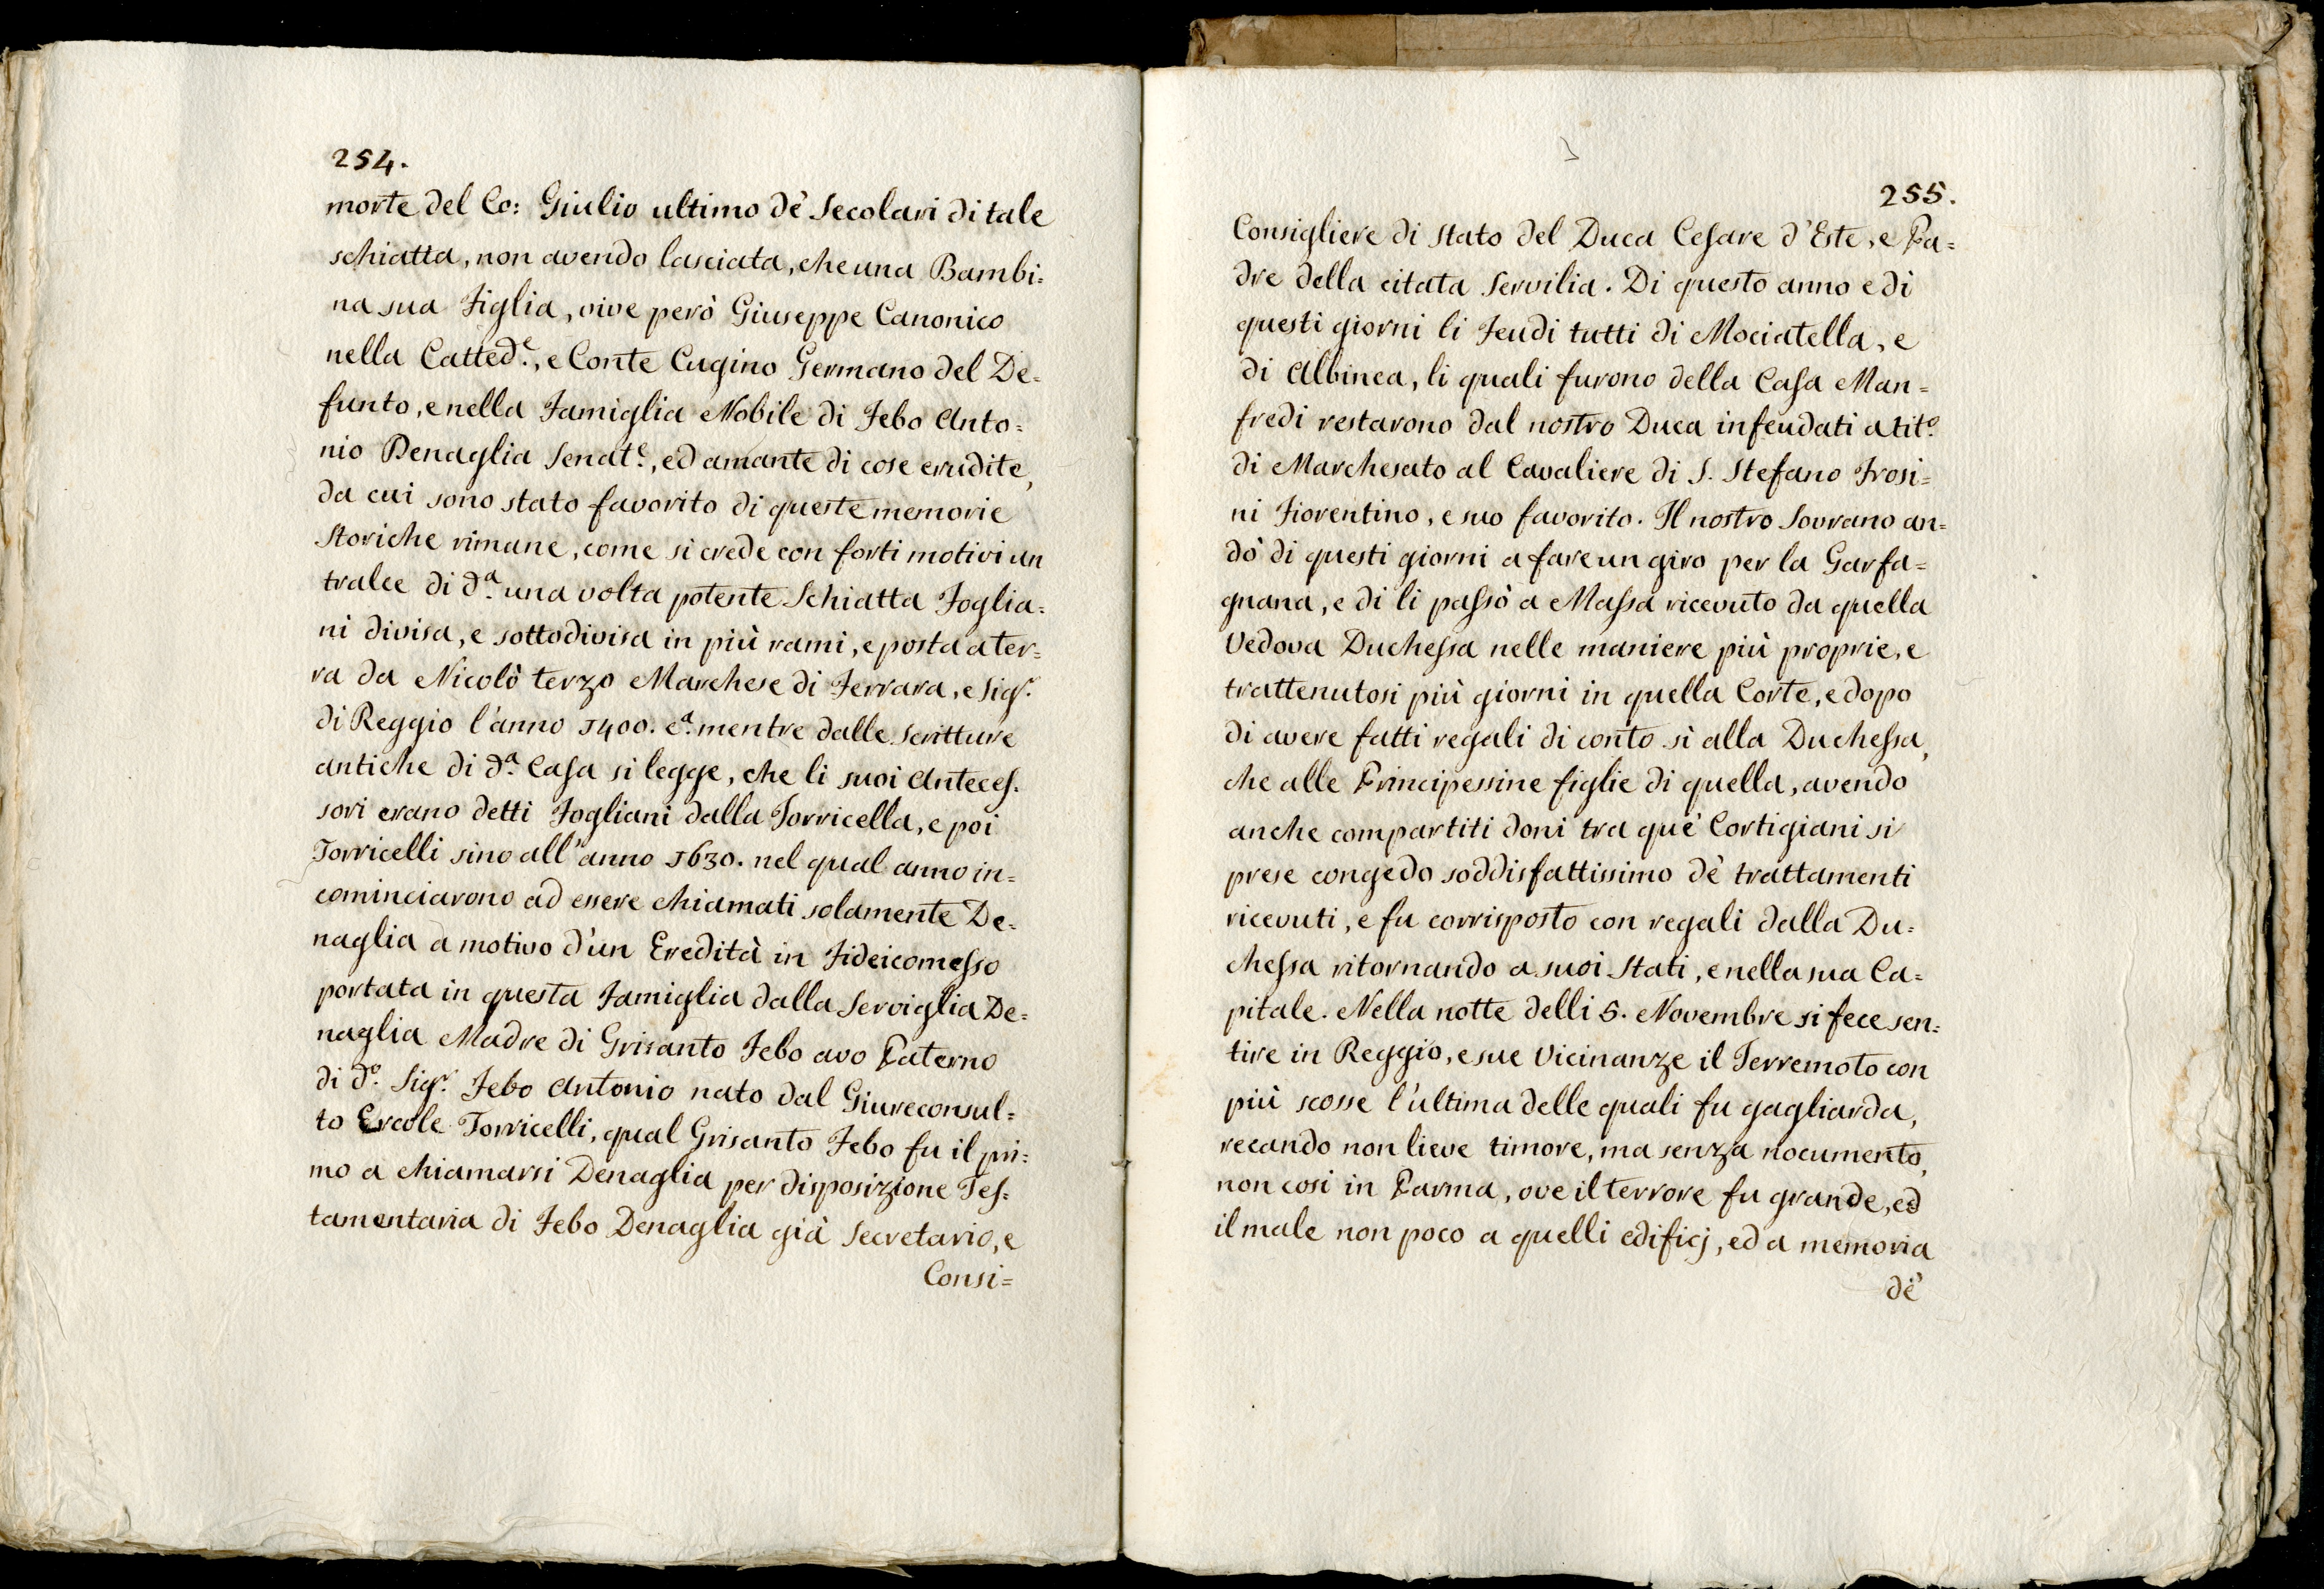 254.
morte del Co: Giulio ultimo dè Secolari di tale
schiatta, non avendo lasciata, che una Bambi=
na sua Figlia, vive però Giuseppe Canonico
nella Catted.e, e Conte Cugino Germano del De=
funto, e nella Famiglia Nobile di Febo Anto=
nio Denaglia Senat.e, ed amante di cose erudite,
da cui sono stato favorito di queste memorie
storiche rimane, come si crede con forti motivi un
tralce di d.a una volta potente Schiatta Foglia=
ni divisa, e sottodivisa in più rami, e posta a ter=
ra da Nicolò terzo Marchese di Ferrara, e Sig.r
di Reggio l'anno 1400. c.a mentre dalle Scritture
antiche di d.a Casa si legge, che li suoi Anteces=
sori erano detti Fogliani dalla Torricella, e poi
Torricelli sino all'anno 1630. nel qual anno in=
cominciarono ad essere chiamati solamente De=
naglia a motivo d'un Eredità in Fideicomesso
portata in questa Famiglia dalla Serviglia De=
naglia Madre di Grisanto Febo avo Paterno
di d.o Sig.r Febo Antonio nato dal Giureconsul=
to Ercole Torricelli, qual Grisanto Febo fu il pri=
mo a chiamarsi Denaglia per disposizione Tes=
tamentaria di Febo Denaglia già Secretario, e
Consi=
255.
Consigliere di Stato del Duca Cesare d'Este, e Pa=
dre della citata Servilia. Di questo anno e di
questi giorni li Feudi tutti di Mociatella, e
di Albinea, li quali furono della Casa Man=
fredi restarono dal nostro Duca infeudati a tit.o
di Marchesato al Cavaliere di S. Stefano Frosi=
ni Fiorentino, e suo favorito. Il nostro Sovrano an=
dò di questi giorni a fare un giro per la Garfa=
gnana, e di li passò a Massa ricevuto da quella
Vedova Duchessa nelle maniere più proprie, e
trattenutosi più giorni in quella Corte, e dopo
di avere fatti regali di conto sì alla Duchessa,
che alle Principessine figlie di quella, avendo
anche compartiti doni tra què Cortigiani si
prese congedo soddisfattissimo dè trattamenti
ricevuti, e fu corrisposto con regali dalla Du=
chessa ritornando a suoi Stati, e nella sua Ca=
pitale. Nella notte delli 5. Novembre si fece sen=
tire in Reggio, e sue Vicinanze il Terremoto con
più scosse l'ultima delle quali fu gagliarda,
recando non lieve timore, ma senza nocumento,
non cosi in Parma, ove il terrore fu grande, ed
il male non poco a quelli edificj, ed a memoria
dè